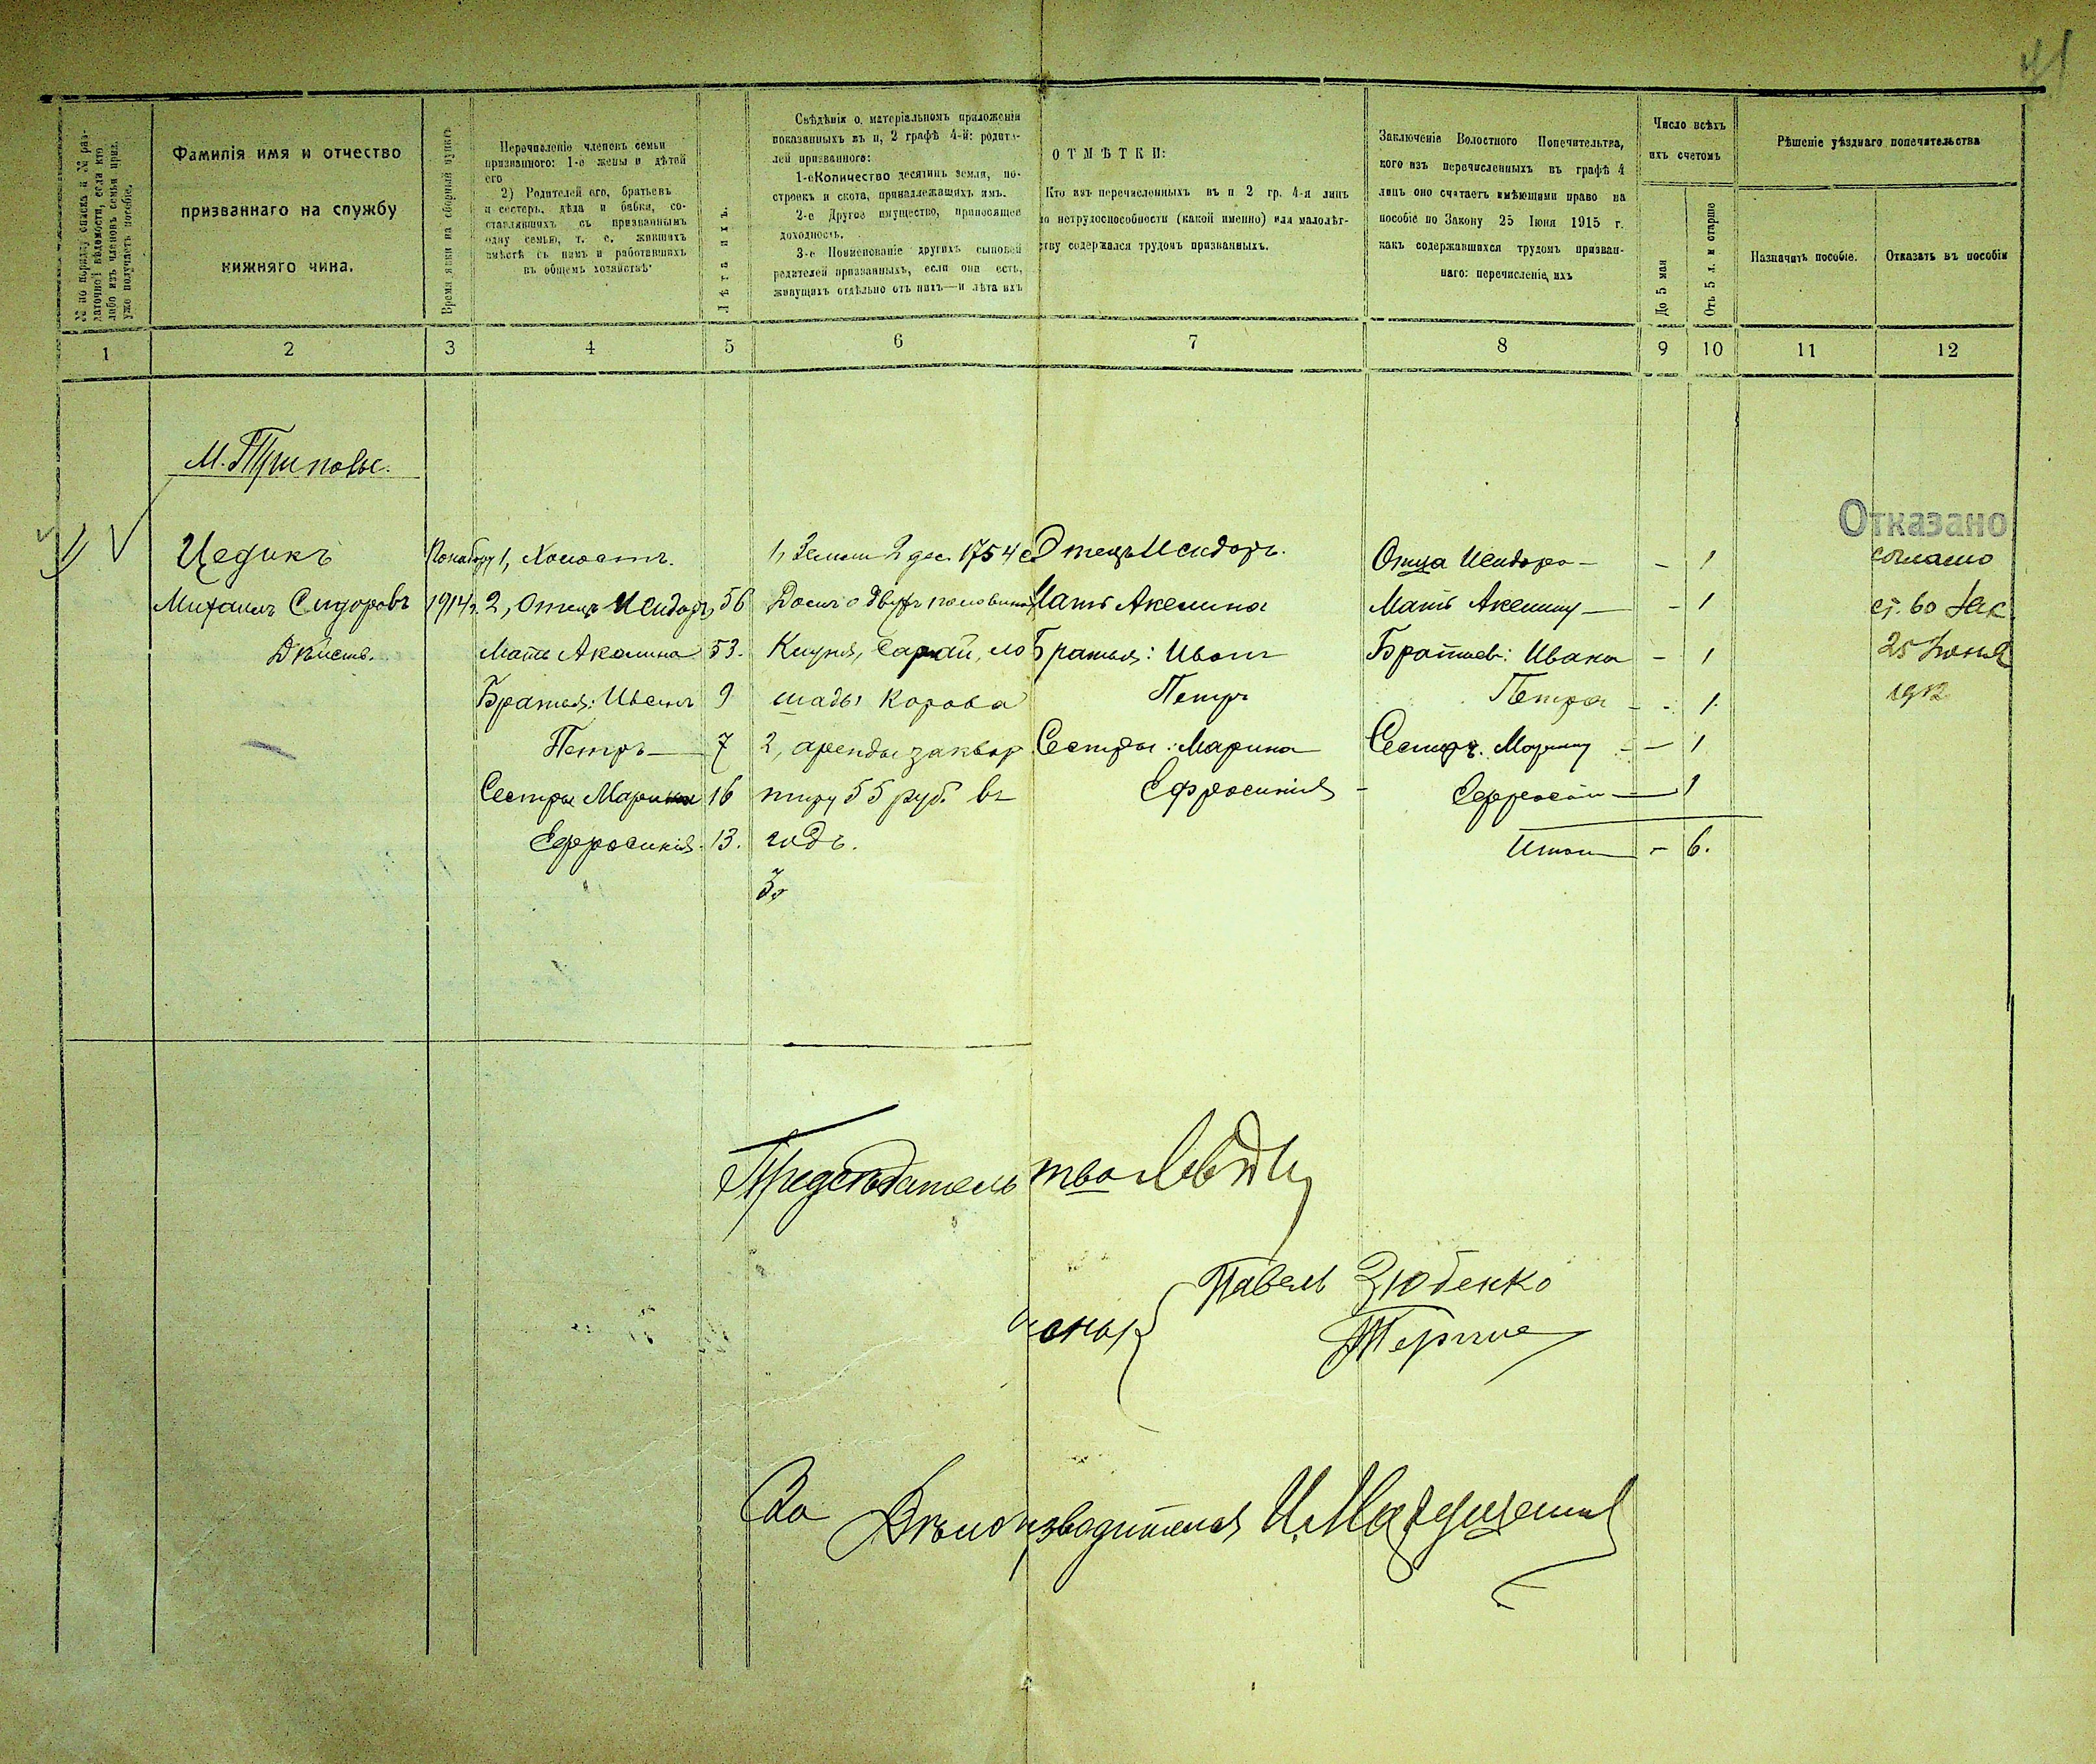 41
№ по порядку списка и №№ раз-
даточной вѣдомости, если кто
либо изъ членовъ семьи приз.
уже получаетъ пособіе.
Фамилія имя и отчество
призваннаго на службу
нижняго чина.
Время явки на сборный пунктъ
Перечисленіе членовъ семьи
призваннаго: 1-е жены и дѣтей
его
2) Родителей его, братьевъ
и сестеръ, дѣда и бабки, со-
ставлявшихъ съ призваннымъ
одну семью, т. е. жившихъ
вмѣстѣ съ нимъ и работавшихъ
въ общемъ хозяйствѣ
Лѣта ихъ.
Свѣдѣнія о матеріальномъ приложеніи
показанныхъ въ п, 2 графѣ 4-й: родите-
лей призваннаго:
1-е Количество десятинъ земли, по-
строекъ и скота, принадлежащихъ имъ.
2-е Другое имущество, приносящее
доходность.
3-е Поименованіе другихъ сыновей
родителей призванныхъ, если они есть,
живущихъ отдѣльно отъ нихъ—и лѣта ихъ
ОТМѢТКИ:
Кто изъ перечисленныхъ въ п 2 гр. 4-я лицъ
по нетрудоспособности (какой именно) или малолѣт-
ству содержался трудомъ призванныхъ.
Заключеніе Волостного Попечительтва,
кого изъ перечисленныхъ въ графѣ 4
лицъ оно считаетъ имѣющими право на
пособіе по Закону 25 Іюня 1915 г.
какъ содержавшихся трудомъ призван-
наго: перечисленіе ихъ
Число всѣхъ
ихъ счетомъ
До 5 мая
Отъ 5 л. и старше
Рѣшеніе уѣзднаго попечительства
Назначить пособіе.
Отказать въ пособіи
1 2 3 4 5 6 7 8 9 10 11 12
М. Триполье.
1
Цедикъ
Михаилъ Сидоровъ
Дѣйств.
1914 г.
1, Холостъ.
2, Отецъ Исидоръ, 56
Мать Акилина 53.
Братья: Иванъ 9
Петръ — 7
Сестры Марина 16
Ефросинія. 13.
1, Земли 2 дес. 1754 с
Домъ о двухъ половинахъ
Клуня, Сарай, ло
шадь корова
2, аренды за квар
тиру 55 руб. въ
годъ.
3,
Отецъ Исидоръ.
Мать Акилина
Братья: Иванъ
Петръ
Сестры: Марина
Ефросинія
Отца Исидора — - 1
Мать Акилину — - 1
Братьев: Ивана - 1
Петра - - 1.
Сестръ. Марину - - 1
Ефросин — 1
Итого - 6.
Отказано
согласно
ст. 60 Зак
25 Іюня
1912
Предсѣдательство
Члены
Павелъ Зюбенко
За Дѣлопроизводителя